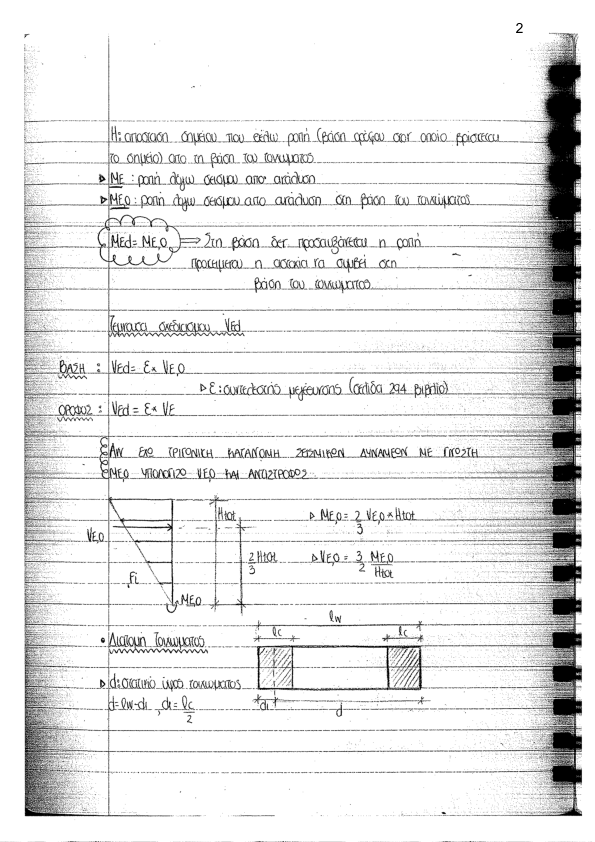 2
Η: αποσταση σημειου που θελω ροπή (βαση οροφου στον οποιο βρισκεται
το σημειο) απο τη βαση του τοιχωματος
▶ ΜΕ : ροπή λογω σεισμου απο αναλυση
▶ ΜΕ,Ο : ροπή λογω σεισμου απο αναλυση στη βαση του τοιχωματος
MEd = ME,O ⇒ Στη βαση δεν προσαυξανεται η ροπή
προκειμενου η αστοχια να συμβει στη
βαση του τοιχωματος
Τεμνουσα σχεδιασμου VEd
ΒΑΣΗ : VEd = ε × VE,O
▶ ε : συντελεστης μεγεθυνσης (σελιδα 294 βιβλιο)
ΟΡΟΦΟΣ : VEd = ε × VE
ΑΝ ΕΧΩ ΤΡΙΓΩΝΙΚΗ ΚΑΤΑΝΟΜΗ ΣΕΙΣΜΙΚΩΝ ΔΥΝΑΜΕΩΝ ΜΕ ΓΝΩΣΤΗ
ΜΕ,Ο ΥΠΟΛΟΓΙΖΩ VE,O ΚΑΙ ΑΝΤΙΣΤΡΟΦΩΣ
Htot
▶ ME,O = 2/3 VE,O × Htot
VE,O
2/3 Htot
▶ VE,O = 3/2 ME,O/Htot
Fi
ME,O
lw
lc lc
• Διατομη Τοιχωματος
▶ d: στατικο ύψος τοιχωματος
d = lw - d1 , d1 = lc/2
d1 d